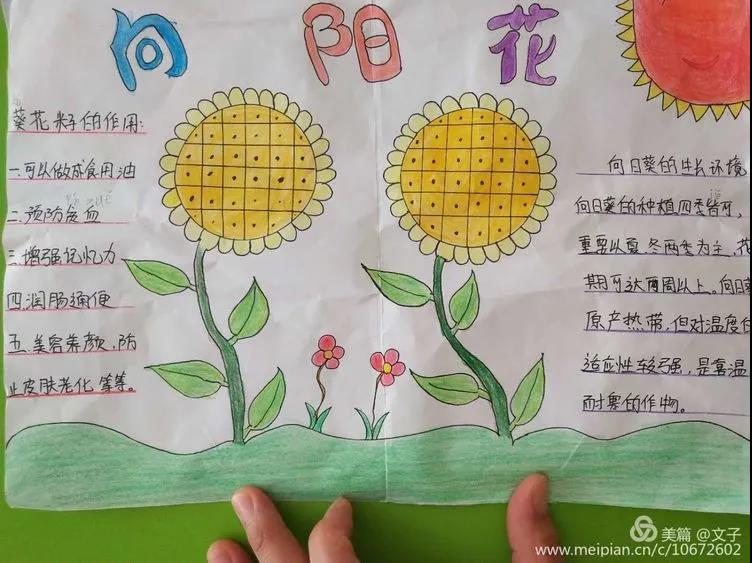 向阳花
葵花籽的作用:
一.可以做成食用油
二.预防贫血
三.增强记忆力
四.润肠通便
五.美容养颜,防
止皮肤老化,等等。
向日葵的生长环境
向日葵的种植四季皆可,
重要以夏冬两季为主,花
期可达两周以上。向日葵
原产热带,但对温度的
适应性较强,是喜温
耐寒的作物。
美篇 @文子
www.meipian.cn/c/10672602